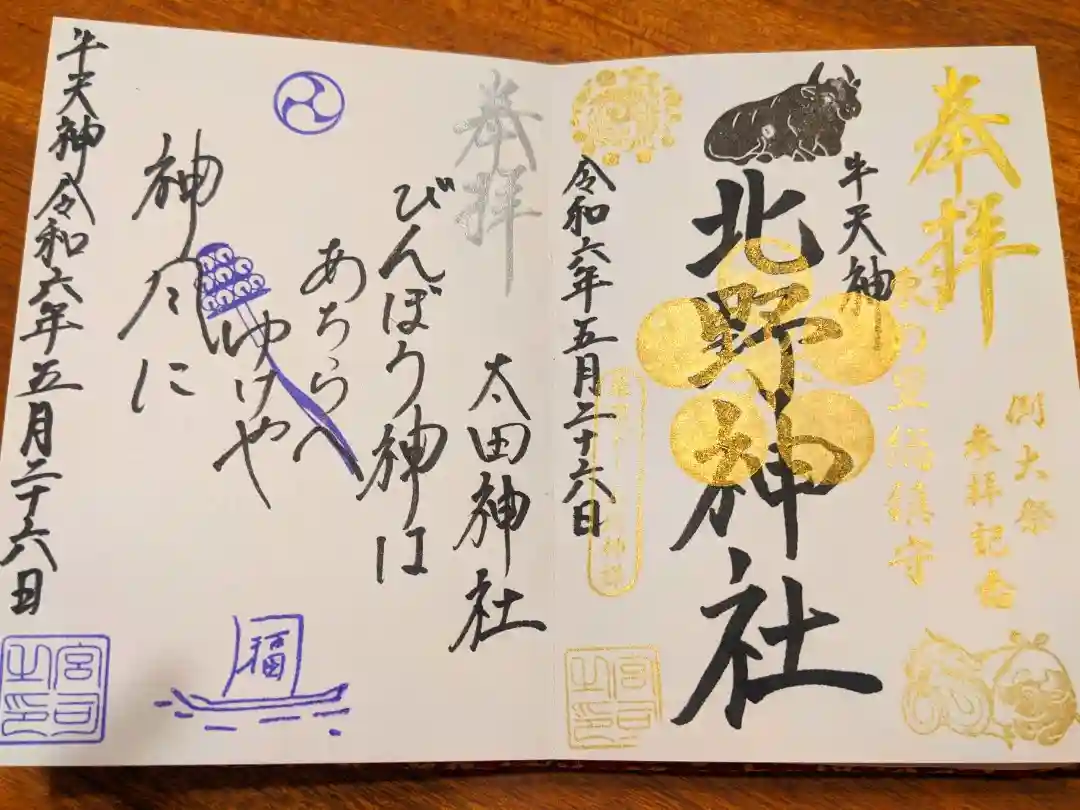 奉拝
例大祭
参拝記念
牛天神
北野神社
令和六年五月二十六日
宮司之印
奉拝
太田神社
びんぼう神は
あちらへ
ゆけや
神々に
福
牛天神 令和六年五月二十六日
宮司之印